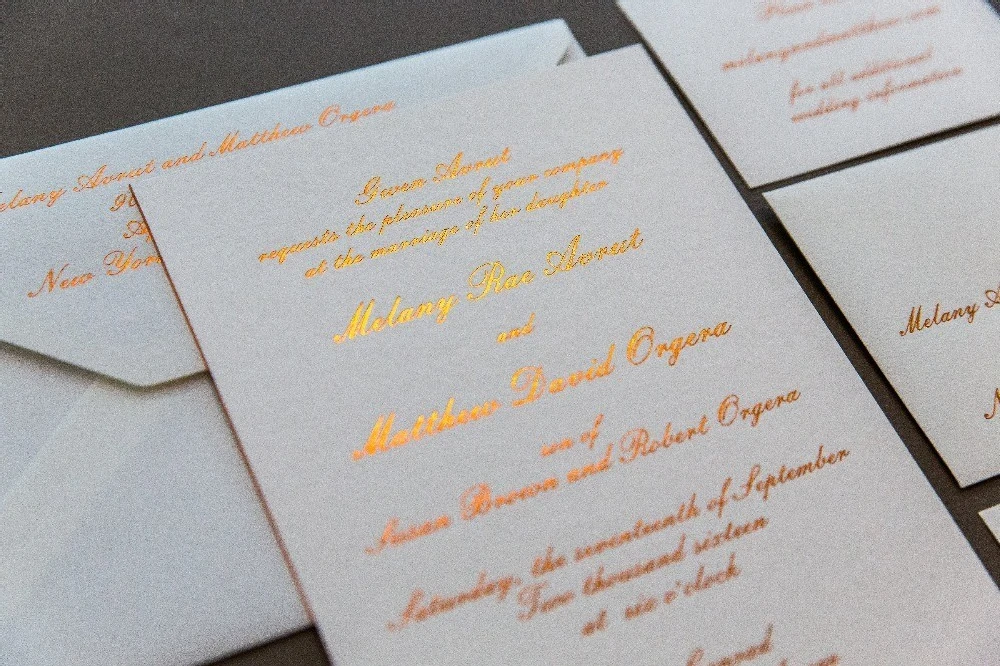 Melany Avrut and Matthew Orgera
New York
Gwen Avrut
requests the pleasure of your company
at the marriage of her daughter
Melany Rae Avrut
and
Matthew David Orgera
son of
Susan Brown and Robert Orgera
Saturday, the seventeenth of September
Two thousand sixteen
at six o'clock
Conrad
for all additional
wedding information
Melany